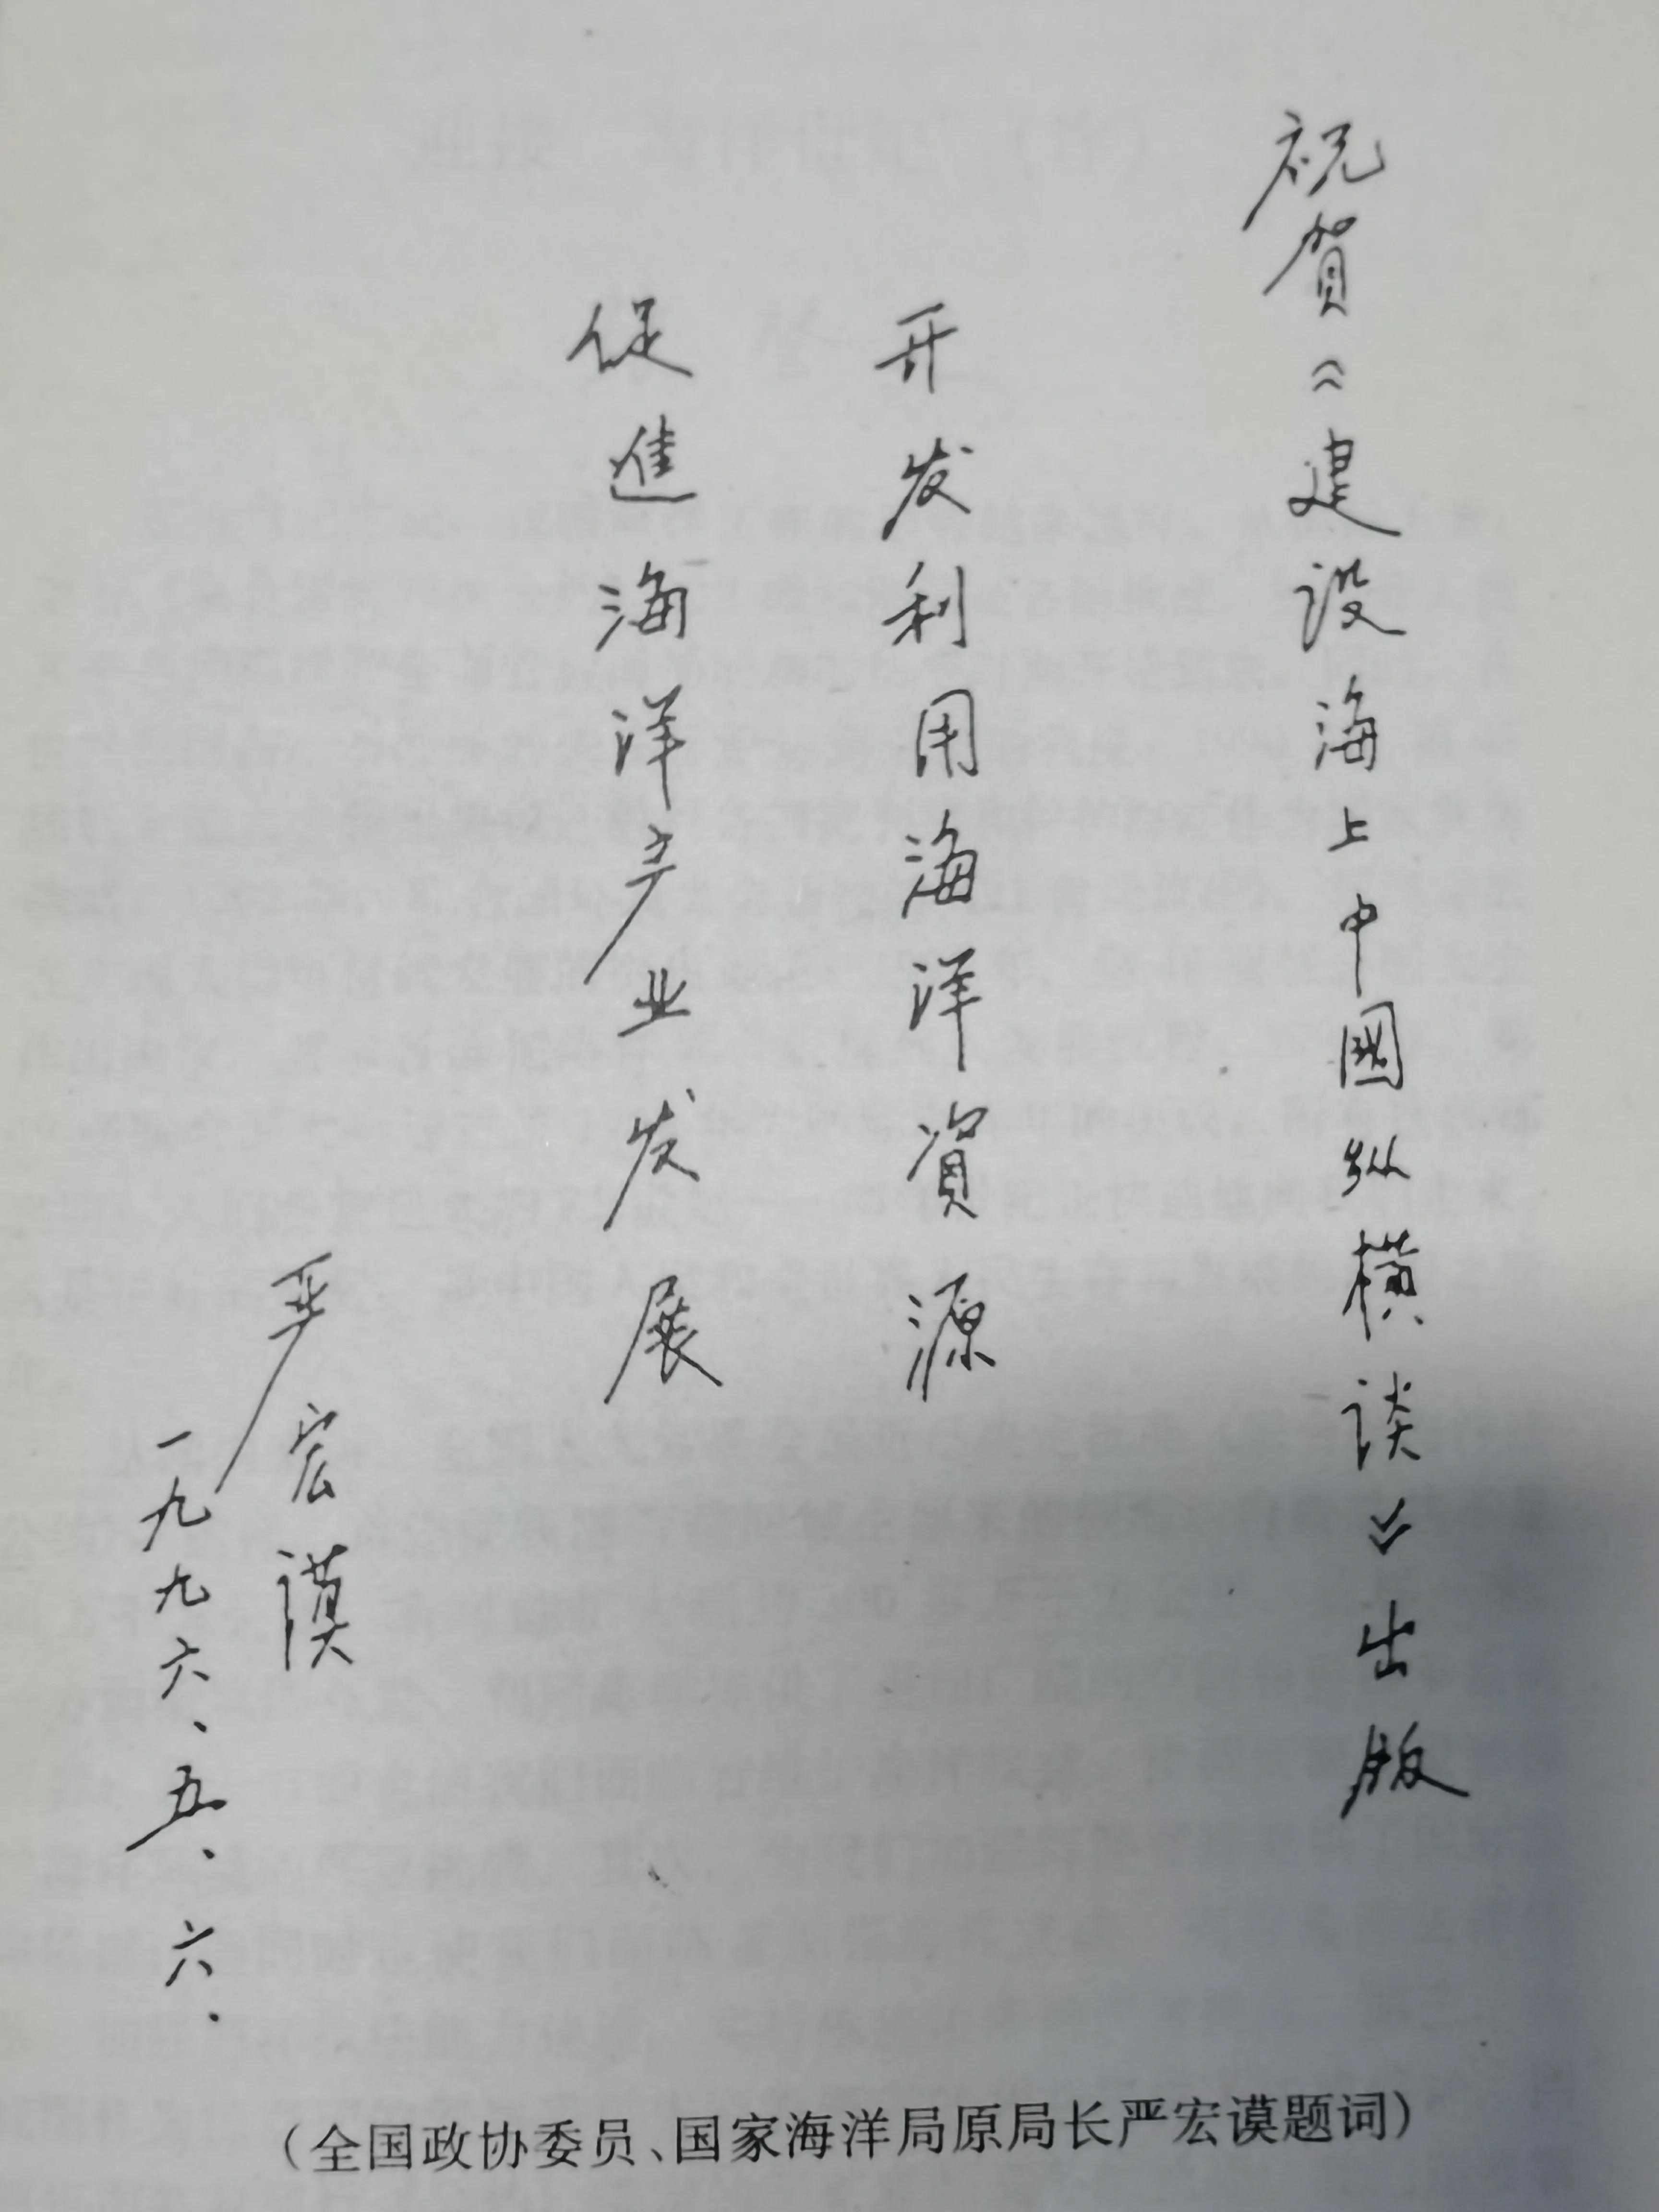 祝贺《建设海上中國纵橫谈》出版
开发利用海洋資源
促進海洋产业发展
严宏谟
一九九六、五、六.
（全国政协委员、国家海洋局原局长严宏谟题词）